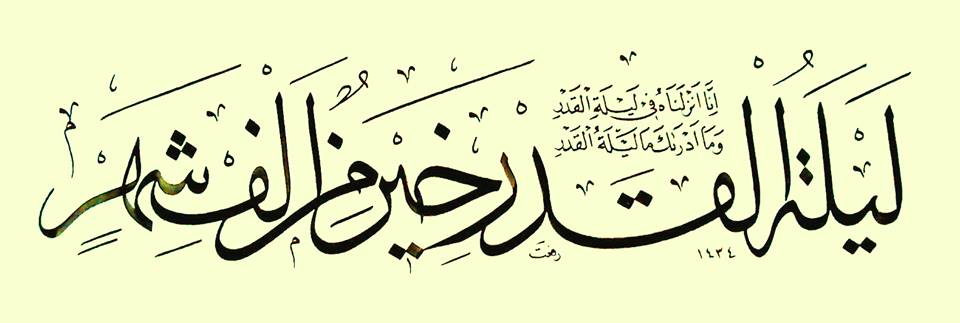 اِنَّا اَنْزَلْنَاهُ فِي لَيْلَةِ الْقَدْرِ
وَمَا اَدْرٰيكَ مَا لَيْلَةُ الْقَدْرِ
لَيْلَةُ الْقَدْرِ خَيْرٌ مِنْ اَلْفِ شَهْرٍ
١٤٣٤